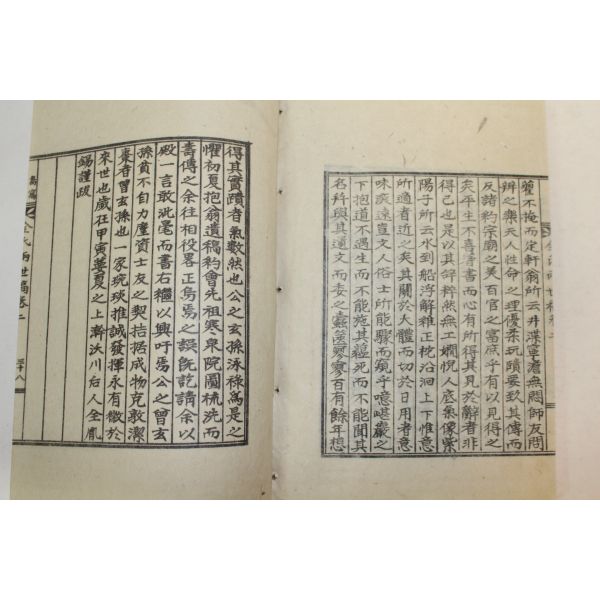 瞿不掩而定軒翁所云井渫寧澹無悶師友問
辨之樂天人性命之理優柔玩賾要玖其傳而
反諸約宗廟之美百官之富庶乎有以見得之
矣平生不喜著書而心有所得其見於辭者非
得已也是以其辭粹然無工嫺悅人底氣像紫
陽子所云水到船浮解維正柁沿洄上下惟意
所適者近之矣其關於人體而切於日用者意
味疾遠豈文人俗士所能驟而窺乎噫嵁巖之
下抱道不遇生而不能施其蘊死而不能聞其
名矜與其遺文而委之蠹篋寥寥百有餘年想
得其實蹟者氣數然也公之玄孫泳祿爲是之
懼初夏抱翁遺稿約會先祖寒泉院圖梳洗而
壽傳之余往相役畧正焉焉之誤旣訖請余以
殿一言敢泚毫而書右穩以興吁焉公之曾玄
孫貧不自力廑資士友之契拮据成物克敢潔
棗者曾玄孫也一家琬琰推誠發揮永有徵於
來世也歲狂甲寅蔞夏之上澣沃川后人全胤
錫謹跋
氏兩世稿卷二
三十八